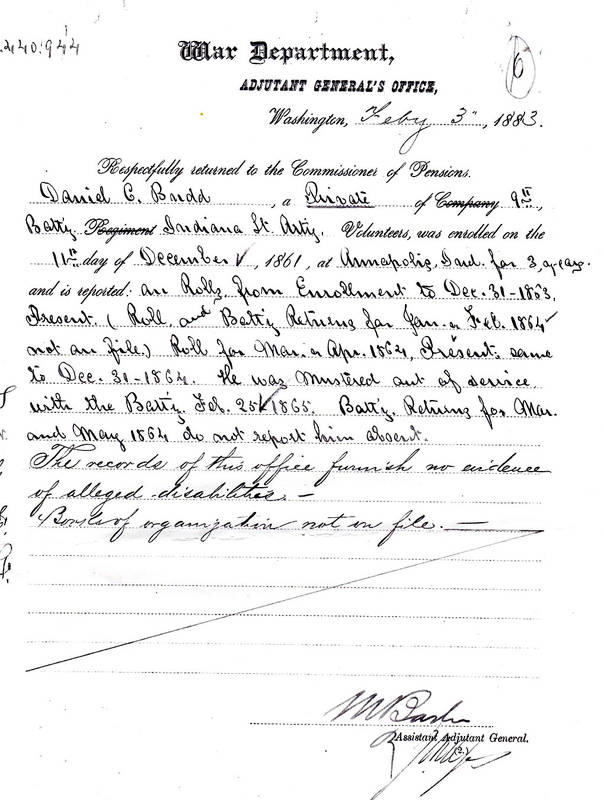 240.944
6
War Department,
ADJUTANT GENERAL'S OFFICE,
Washington, Feby 3", 1883.
Respectfully returned to the Commissioner of Pensions.
Daniel C. Budd, a Private of Company 9th,
Batty Regiment Indiana Lt. Arty. Volunteers, was enrolled on the
11th day of December, 1861, at Annapolis, Ind. for 3 years
and is reported: on Rolls, from Enrollment to Dec. 31-1863,
Present. (Roll and Batt'y Returns for Jan. & Feb. 1864
not on file.) Roll for Mar. & Apr. 1864, Present; same
to Dec. 31-1864. He was mustered out of service
with the Batty. Feb. 25 1865. Batty. Returns for Mar.
and May 1864 do not report him absent.
The records of this office furnish no evidence
of alleged disabilities. —
Books of organization not on file. —
Assistant Adjutant General.
(2.)